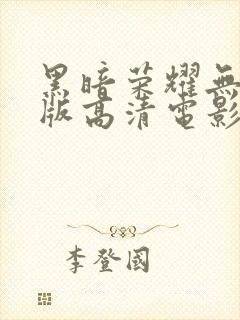 黑暗荣耀無
版高清電影
李登國